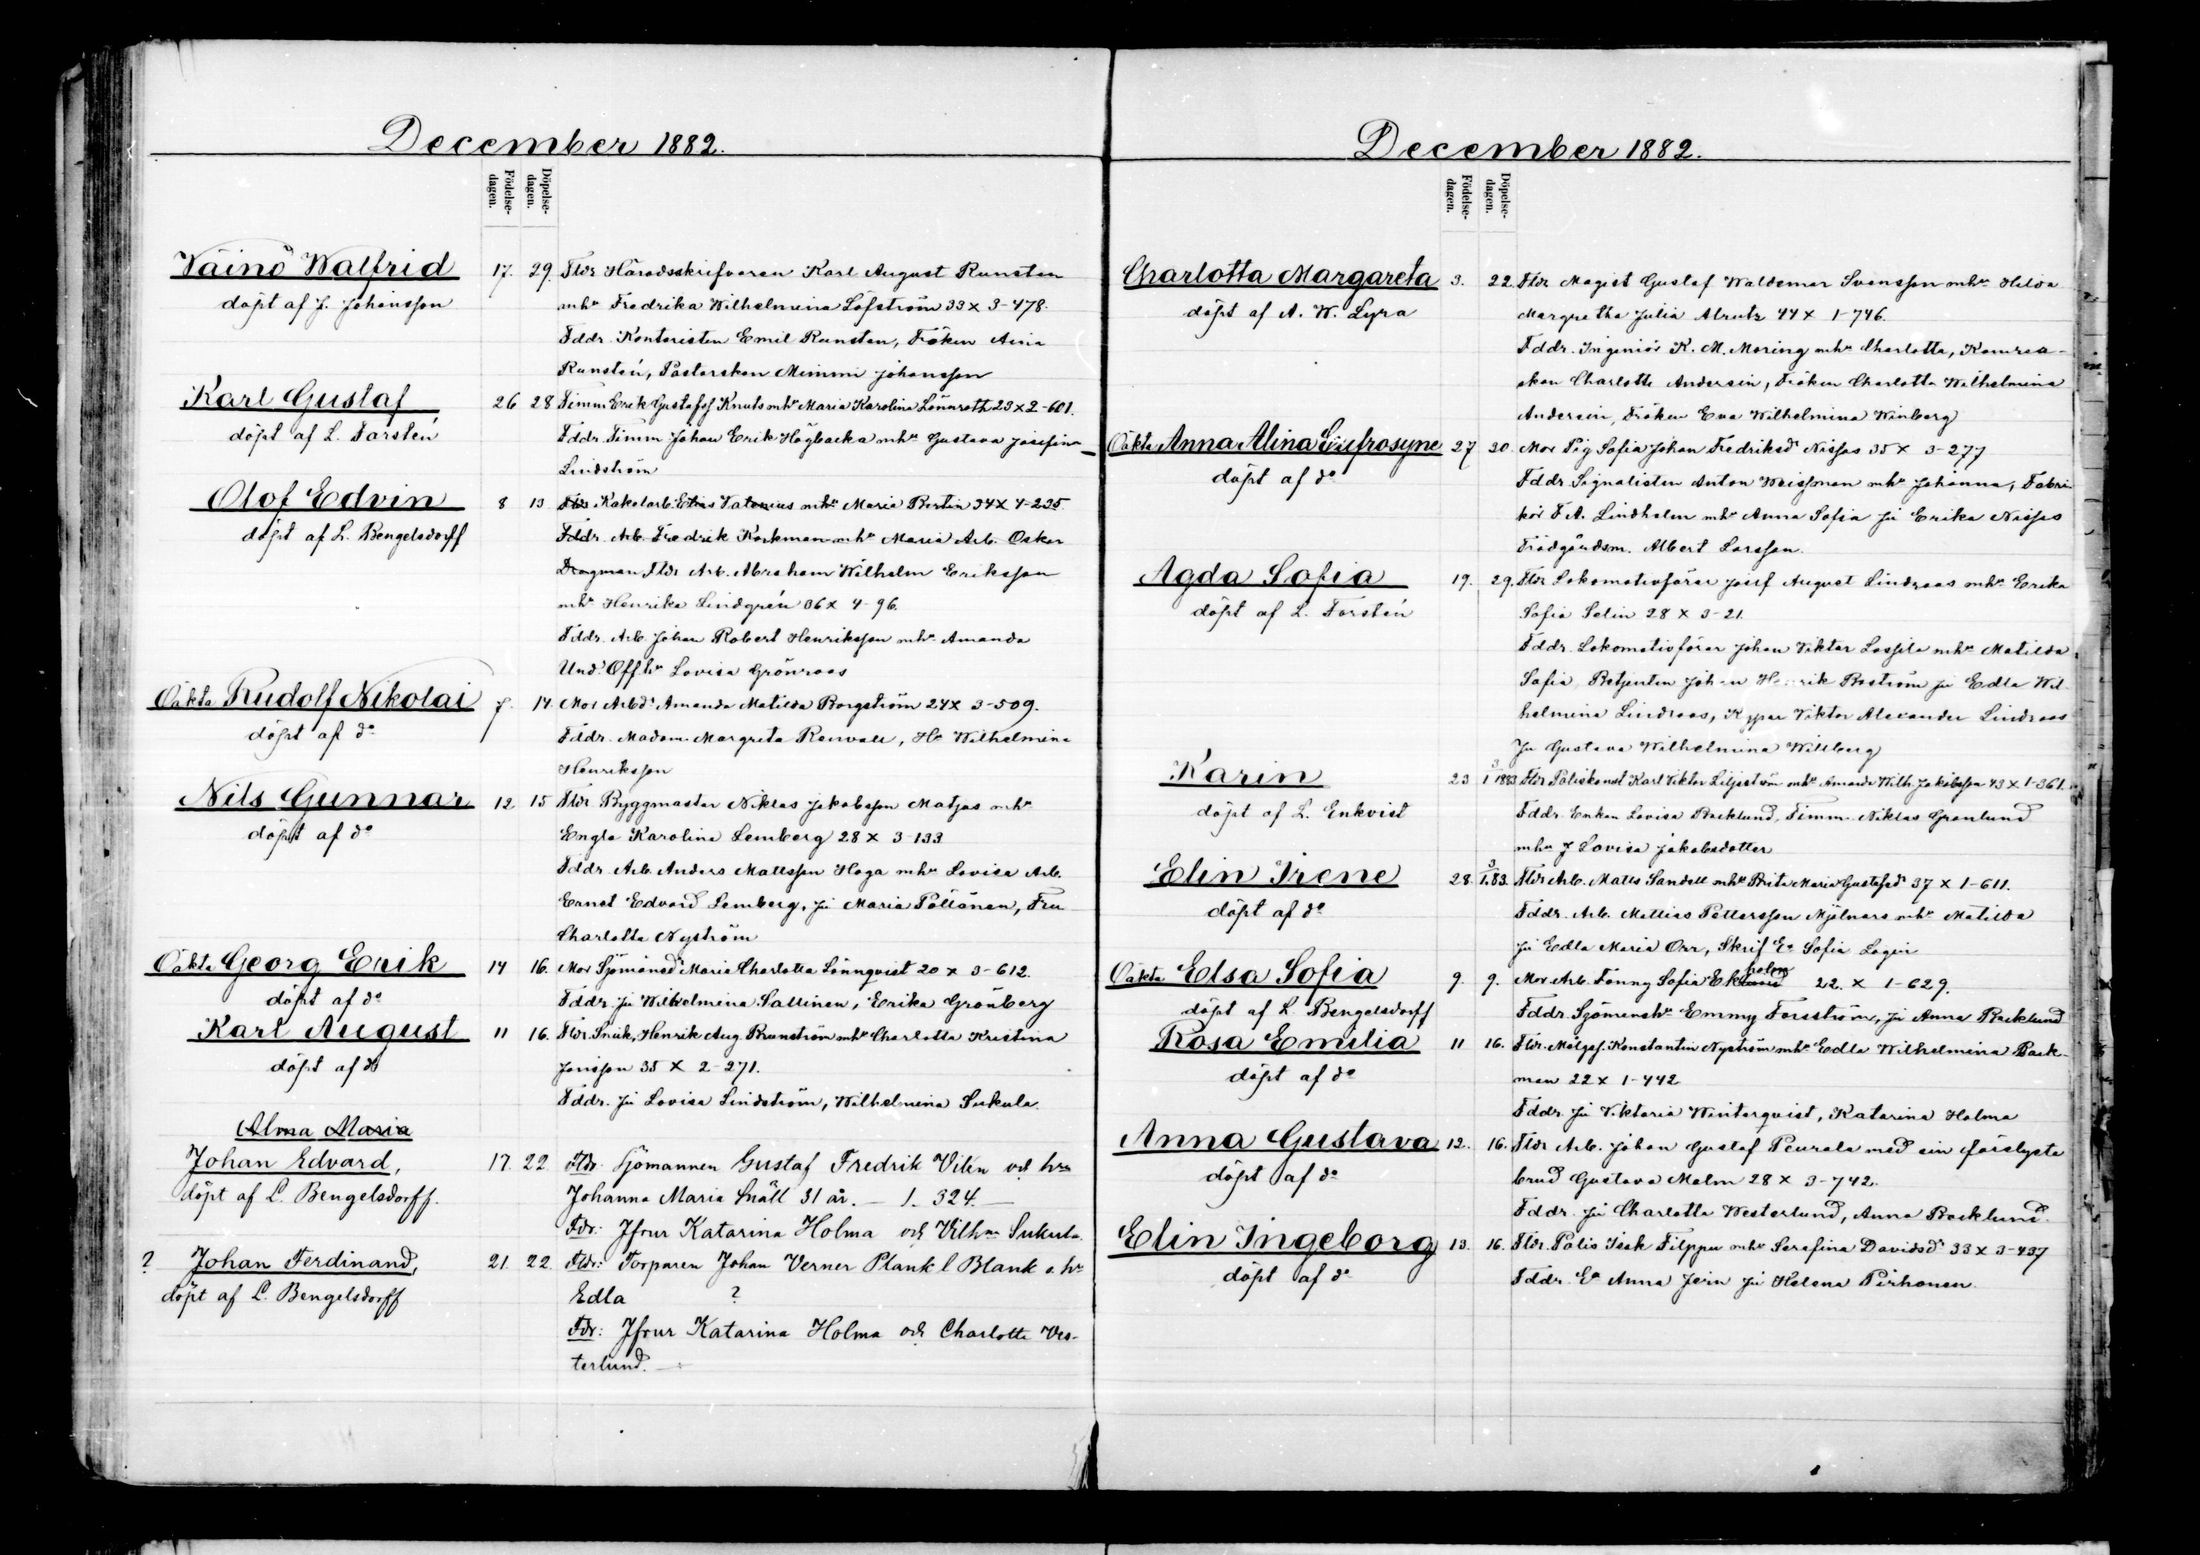 December 1882.
Födelse-
dagen.
Döpelse-
dagen.
Väinö Walfrid
döpt af J. Johansson
17. 29. Fldr Häradsskrifvaren Karl August Runsten
mhu Fredrika Wilhelmina Löfström 33 x 3-478.
Fddr. Kontoristen Emil Runsten, Fröken Aina
Runstén, Pastorskan Mimmi Johansson
Karl Gustaf
döpt af L. Forstén
26 28 Timm Erik Gustafss Knuts mhu Maria Karolina Lönnroth 23 x 2-601.
Fddr. Timm Johan Erik Högbacka mhu Gustava Josefina
Lindström
Olof Edvin
döpt af L. Bengelsdorff
8 13 Fldr Kakelarb. Elias Vatonius mhu Maria Bertin 34 x 4-235.
Fddr. Arb. Fredrik Korkman mhu Maria Arb. Oskar
Dragman Fldr Arb. Abraham Wilhelm Eriksson
mhu Henrika Lindgrén 36 x 4-96.
Fddr. Arb. Johan Robert Henriksson mhu Amanda
Und: Offhu Lovisa Grönroos
Oäkta Rudolf Nikolai
döpt af do
7. 14. Mor Arbdr Amanda Matilda Borgström 24 x 3-509.
Fddr. Madam Margreta Renvall, Hu Wilhelmina
Henriksson
Nils Gunnar
döpt af do
12 15 Fldr. Byggmaster Niklas Jakobsson Matjas mhu
Engla Karolina Lemberg 28 x 3-133
Fddr. Arb. Anders Mattsson Haga mhu Lovisa Arb.
Ernst Edvard Lemberg, Ju Maria Pöllänen, Fru
Charlotta Nyström
Oäkta Georg Erik
döpt af do
14 16. Mor Sjömansdr Maria Charlotta Lönnqvist 20 x 3-612.
Fddr. Ju Wilhelmina Sallinen, Erika Grönberg
Karl August
döpt af do
11 16. Fldr. Snik. Henrik Aug. Brunström mhu Charlotta Kristina
Jonsson 35 x 2-271.
Fddr. Ju Lovisa Lindström, Wilhelmina Sukula.
Alma Maria
Johan Edvard,
döpt af L. Bengelsdorff.
17. 22. Fldr. Sjömannen Gustaf Fredrik Vilén och hu
Johanna Maria Snäll 31 år. — 1. 324. —
Fdr: Jfrur Katarina Holma och Vilhna Sukula.
? Johan Ferdinand,
döpt af L. Bengelsdorff
21. 22. Fldr: Torparen Johan Verner Plank l Blank o. hu
Edla ?
Fdr: Jfrur Katarina Holma och Charlotta Ves-
terlund. —
December 1882.
Födelse-
dagen.
Döpelse-
dagen.
Charlotta Margareta
döpt af A. W. Lyra
3. 22. Fldr Magist Gustaf Waldemar Svensson mhu Hilda
Margretha Julia Alrutz 44 x 1-746.
Fddr. Ingeniör K. M. Moring mhu Charlotta, Kamrea-
skan Charlotte Andersin, Fröken Charlotta Wilhelmina
Andersin, Fröken Eva Wilhelmina Winberg
Oäkta Anna Alina Eufrosyne
döpt af do
27 30. Mor Pig Sofia Johan Fredriksdr Nissas 35 x 3-277
Fddr. Signalisten Anton Weissman mhu Johanna, Fabri-
kör F. A. Lindholm mhu Anna Sofia Ju Erika Nissas
Trädgårdsm. Albert Larsson.
Agda Sofia
döpt af L. Forstén
19. 29. Fldr Lokomotivförar Josef August Lindroos mhu Erika
Sofia Selin 28 x 3-21.
Fddr. Lokomotivförar Johan Viktor Lassila mhu Matilda
Sofia, Betjenten Johan Henrik Boström Ju Edla Wil-
helmina Lindroos, Kypar Viktor Alexander Lindroos
Ju Gustava Wilhelmina Willberg
Karin
döpt af L. Enkvist
23 3/1 1883 Fldr Poliskonst Karl Viktor Liljeström mhu Amanda Wilh. Jakobsson 43 x 1-361.
Fddr. Enkan Lovisa Backlund, Timm. Niklas Granlund
mhu J Lovisa Jakobsdotter
Elin Irene
döpt af do
28. 3/1.83. Fldr Arb. Matts Sandell mhu Brita Maria Gustafsdr 37 x 1-611.
Fddr. Arb. Mattias Pettersson Mjölnars mhu Matilda
Ju Edla Maria Orr, Skrif Ea Sofia Login
Oäkta Elsa Sofia
döpt af L. Bengelsdorff
9. 9. Mor Arb. Fanny Sofia Ekholm 22. x 1-629.
Fddr Sjömanshu Emmy Forsström, Ju Anna Backlund
Rosa Emilia
döpt af do
11 16. Fldr. Målges. Konstantin Nyström mhu Edla Wilhelmina Back-
man 22 x 1-442
Fddr. Ju Viktoria Winterqvist, Katarina Holma
Anna Gustava
döpt af do
12. 16. Fldr Arb. Johan Gustaf Peurala med sin förelysta
brud Gustava Malm 28 x 3-742.
Fddr. Ju Charlotta Westerlund, Anna Backlund.
Elin Ingeborg
döpt af do
13. 16. Fldr. Polis Isak Filppu mhu Serafina Davidsdr 33 x 3-437
Fddr. Ea Anna Jern Ju Helena Pirhonen.